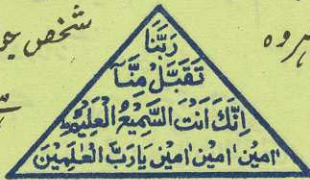 شخص جو
ہروہ
رَبَّنَا
تَقَبَّلْ مِنَّا
اِنَّكَ اَنْتَ السَّمِيْعُ الْعَلِيْمُ
اٰمين اٰمين اٰمين يَارَبَّ الْعٰلَمِيْنَ